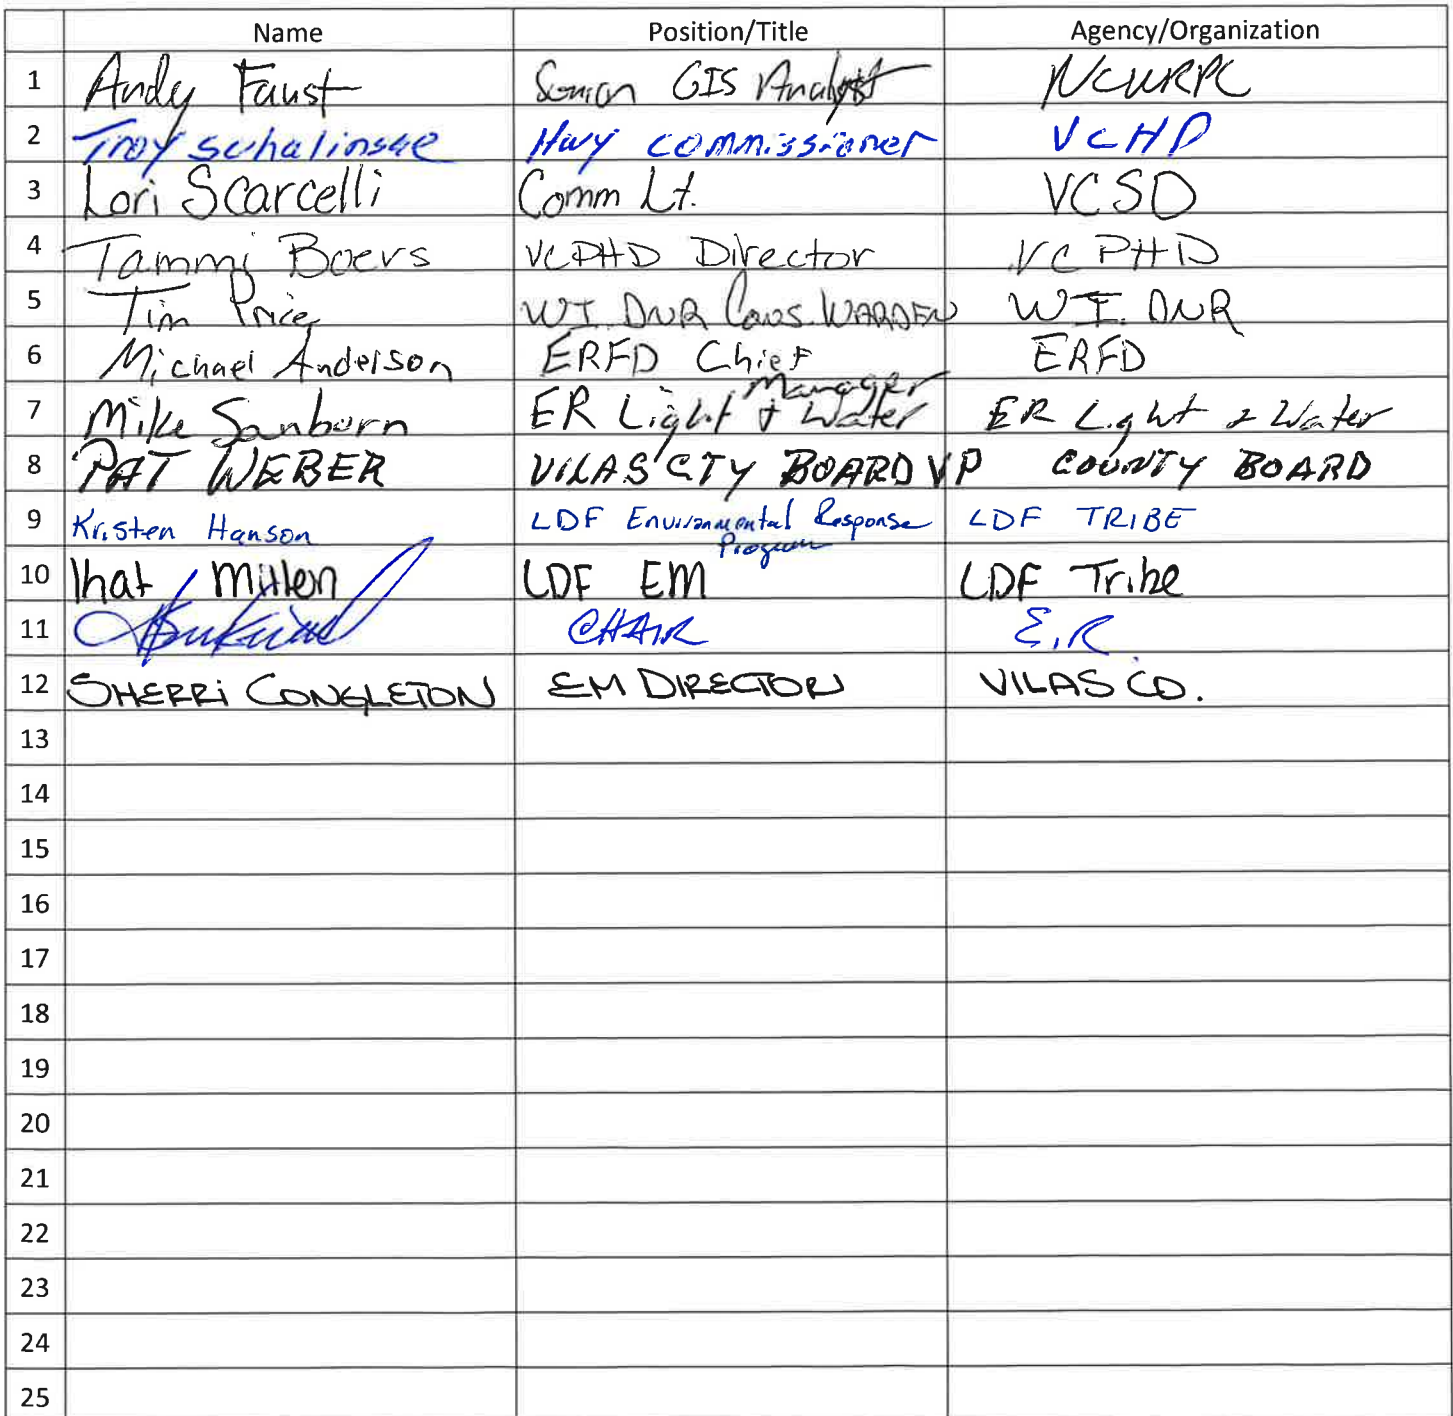 Name Position/Title Agency/Organization
1 Andy Faust Senior GIS Analyst NCWRPC
2 Troy Schalinske Hwy commissioner VCHD
3 Lori Scarcelli Comm Lt. VCSD
4 Tammi Boers VCPHD Director VCPHD
5 Tim Price WI. DNR Cons. WARDEN WI. DNR
6 Michael Anderson ERFD Chief ERFD
Manager
7 Mike Sanborn ER Light & Water ER Light & Water
8 PAT WEBER VILAS CTY BOARD VP COUNTY BOARD
9 Kristen Hanson LDF Environmental Response LDF TRIBE
Program
10 LDF EM LDF Tribe
11 CHAIR E.R.
12 SHERRi CONGLETON EM DIRECTOR VILAS CO.
13
14
15
16
17
18
19
20
21
22
23
24
25